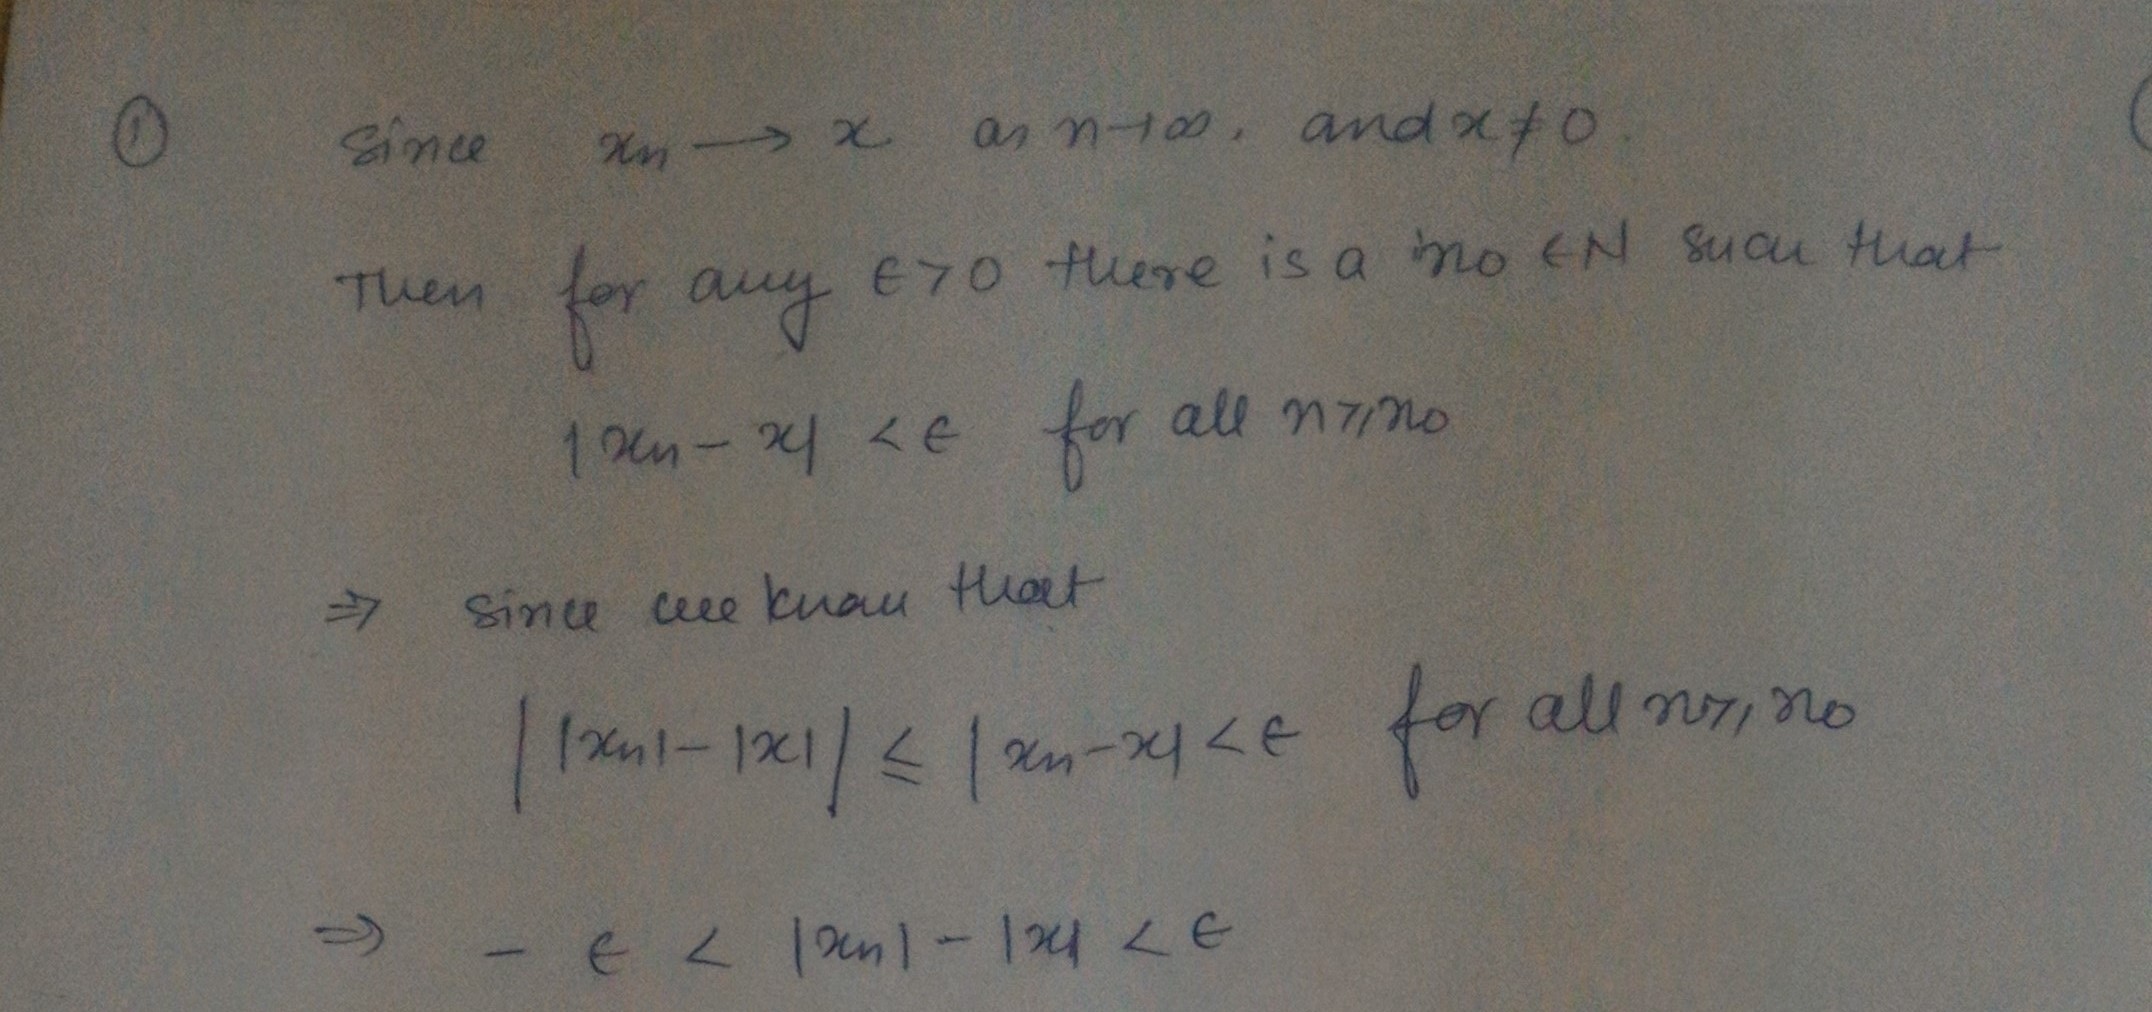 ① Since xn → x as n→∞. and x≠0.
Then for any ϵ>0 there is a n0 ∈N such that
|xn - x| <ϵ for all n≥n0
⇒ since we know that
||xn| - |x|| ≤ |xn-x| <ϵ for all n≥n0
⇒ - ϵ < |xn| - |x| < ϵ